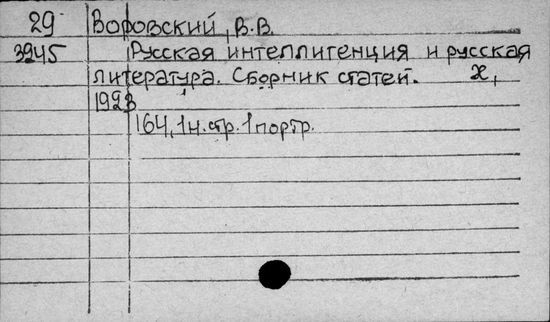 29 Воровский, В.В.
3945 Русская интеллигенция и русская
литература. Сборник статей. Х,
1923
164, 1н.стр. 1 портр.